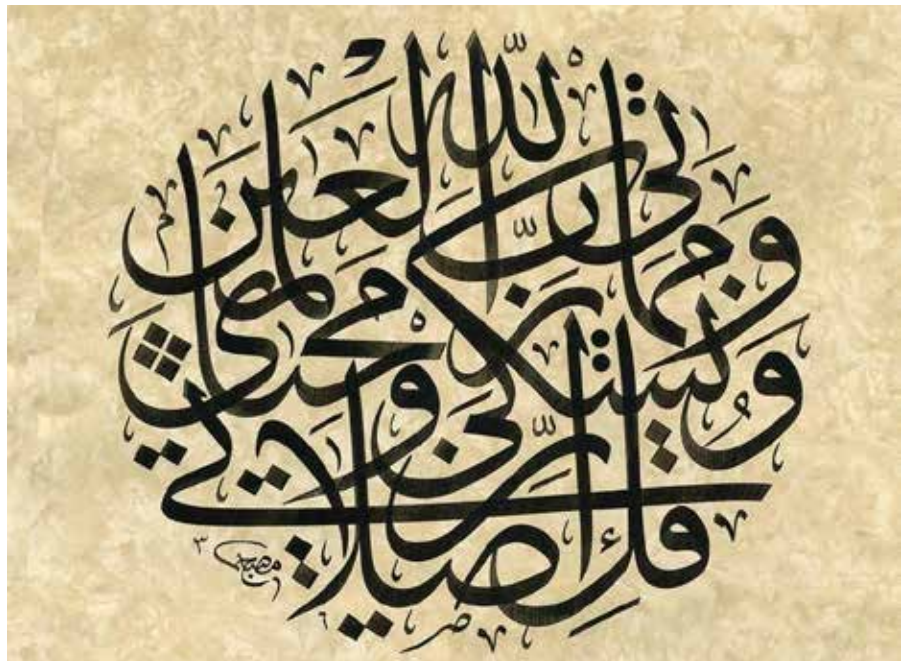 قل إن صلاتي ونسكي ومحياي ومماتي لله رب العالمين